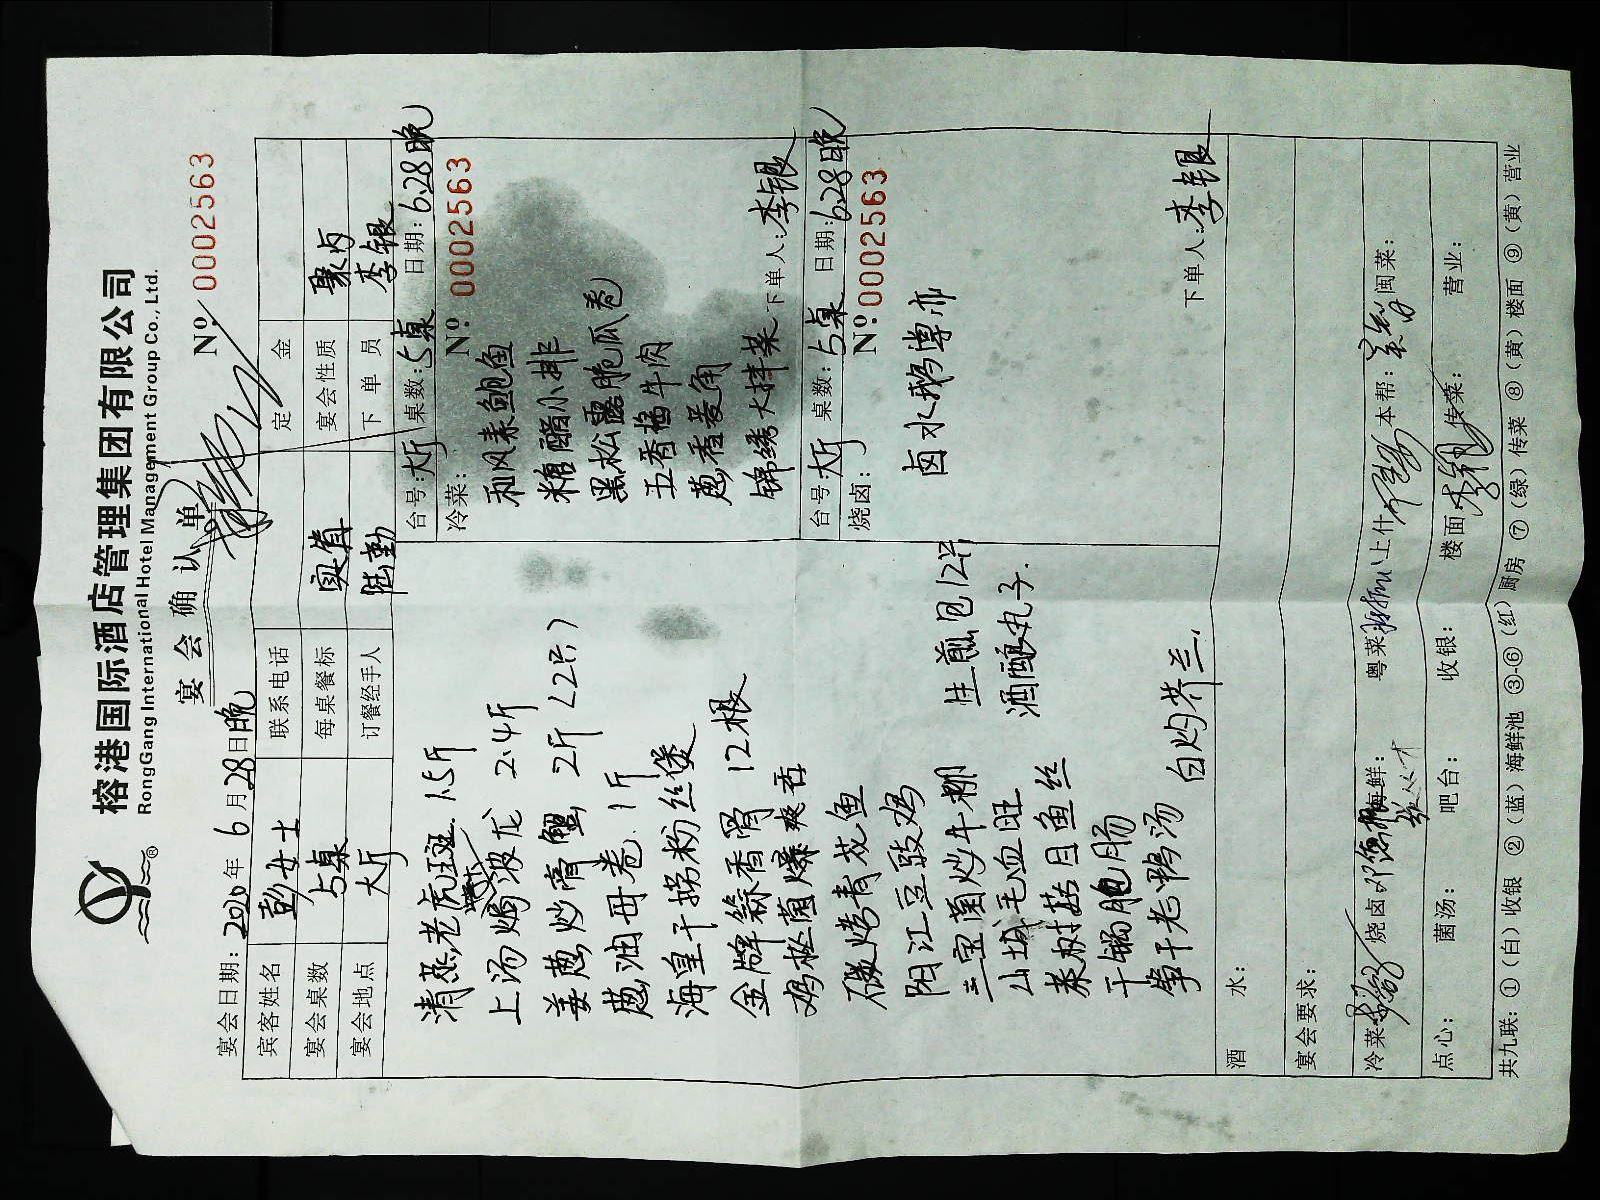 榕港国际酒店管理集团有限公司
RongGang International Hotel Management Group Co., Ltd.
®
宴会确认单
№ 0002563
宴会日期：2020年6月28日晚
宾客姓名 彭女士 联系电话 定金
宴会桌数 5桌 每桌餐标 实值 宴会性质 聚内
宴会地点 大厅 订餐经手人 陆勤 下单员 李银
清蒸老虎斑 1.5斤
上汤焗波龙 2.4斤
姜葱炒膏蟹 2斤（2只）
葱油母卷 1斤
海皇干捞粉丝煲
金牌蒜香骨 12根
鸡枞菌爆爽舌
碳烤青花鱼
阳江豆豉鸡
三宝菌炒牛柳
山城毛血旺
茶树菇目鱼丝
干锅肥肠
笋干老鸭汤
生煎包12只
酒酿丸子.
白灼芥兰.
台号：大厅 桌数：5桌 日期：6.28晚
冷菜： № 0002563
和风素鲍鱼
糖醋小排
黑松露脆瓜卷
五香酱牛肉
葱香菱角
锦绣大拌菜
下单人：李银
台号：大厅 桌数：5桌 日期：6.28晚
烧卤： №0002563
卤水鹅
下单人：李银
酒水：
宴会要求：
冷菜 烧卤 海鲜： 粤菜 上什 本帮： 闽菜：
点心： 菌汤： 吧台： 收银： 楼面 李银 传菜： 营业：
共九联：①（白）收银 ②（蓝）海鲜池 ③-⑥（红）厨房 ⑦（绿）传菜 ⑧（黄）楼面 ⑨（黄）营业